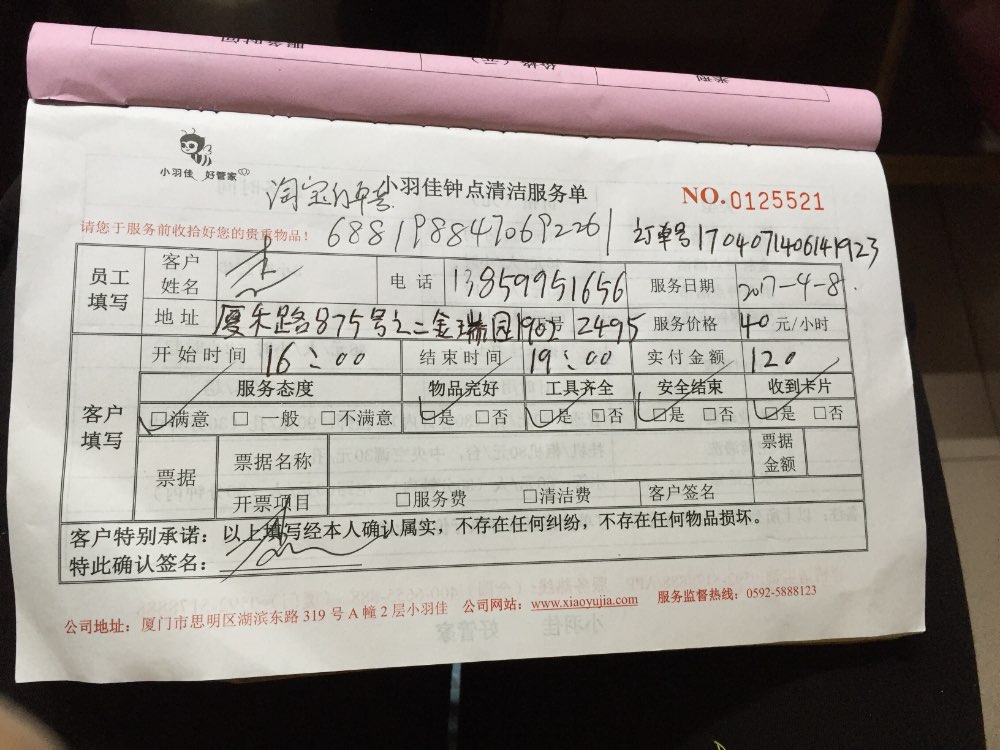 服务时间 价格(元) 类型
小羽佳 好管家
小羽佳钟点清洁服务单
NO.0125521
淘宝
请您于服务前收拾好您的贵重物品！
688198847069226 1 订单号170407140614 1923
员工填写 客户姓名 电话 13859951656 服务日期 2017-4-8.
地址 厦禾路875号之二金瑞园1902 2495 服务价格 40 元/小时
客户填写 开始时间 16:00 结束时间 19:00 实付金额 120
服务态度 物品完好 工具齐全 安全结束 收到卡片
□满意 □一般 □不满意 □是 □否 □是 □否 □是 □否 □是 □否
票据 票据名称 票据金额
开票项目 □服务费 □清洁费 客户签名
客户特别承诺：以上填写经本人确认属实，不存在任何纠纷，不存在任何物品损坏。
特此确认签名：
公司地址：厦门市思明区湖滨东路 319 号 A 幢 2 层小羽佳 公司网站：www.xiaoyujia.com 服务监督热线：0592-5888123